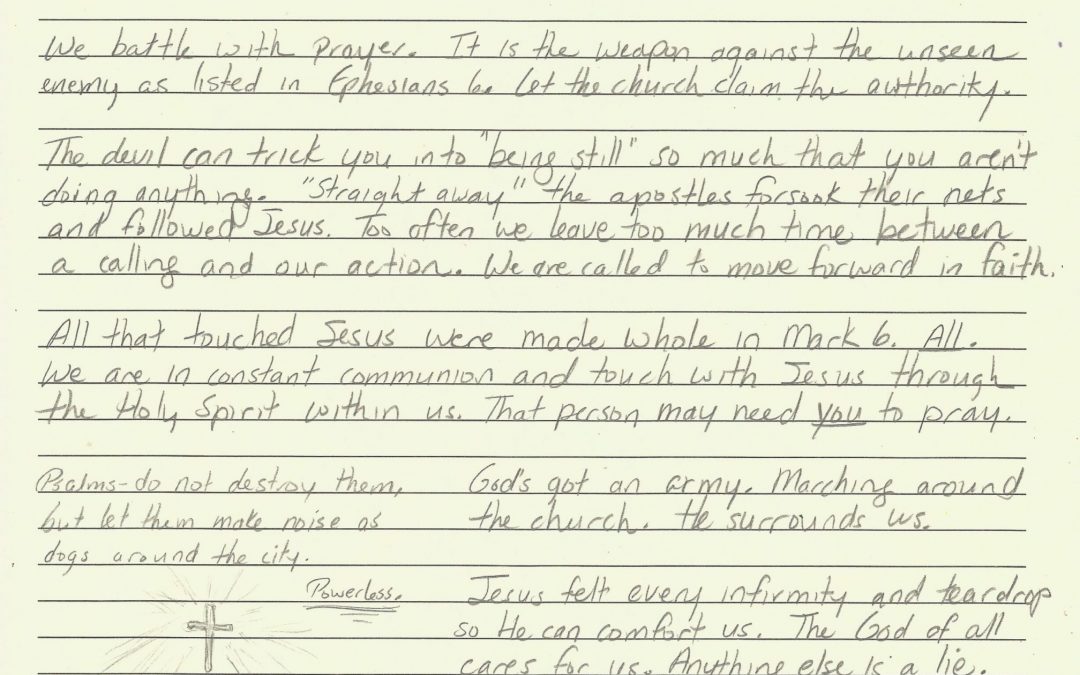 We battle with prayer. It is the weapon against the unseen
enemy as listed in Ephesians 6. Let the church claim the authority.
The devil can trick you into "being still" so much that you aren't
doing anything. "Straight away" the apostles forsook their nets
and followed Jesus. Too often we leave too much time between
a calling and our action. We are called to move forward in faith.
All that touched Jesus were made whole in Mark 6. All.
We are in constant communion and touch with Jesus through
the Holy Spirit within us. That person may need you to pray.
Psalms-do not destroy them,
but let them make noise as
dogs around the city.
Powerless.
God's got an army. Marching around
the church. He surrounds us.
Jesus felt every infirmity and teardrop
so He can comfort us. The God of all
cares for us. Anything else is a lie.